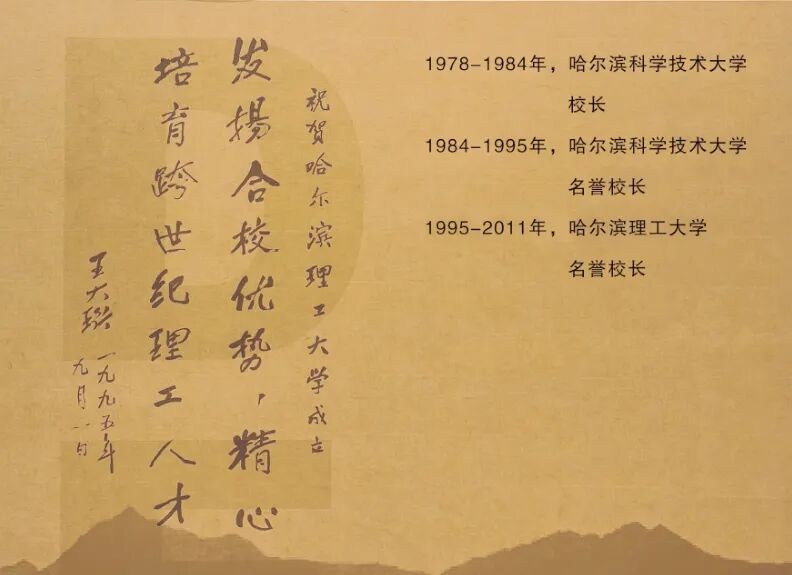 祝贺哈尔滨理工大学成立
发揚合校优势，精心
培育跨世纪理工人才
王大珩
一九九五年
九月八日
1978-1984年，哈尔滨科学技术大学
校长
1984-1995年，哈尔滨科学技术大学
名誉校长
1995-2011年，哈尔滨理工大学
名誉校长